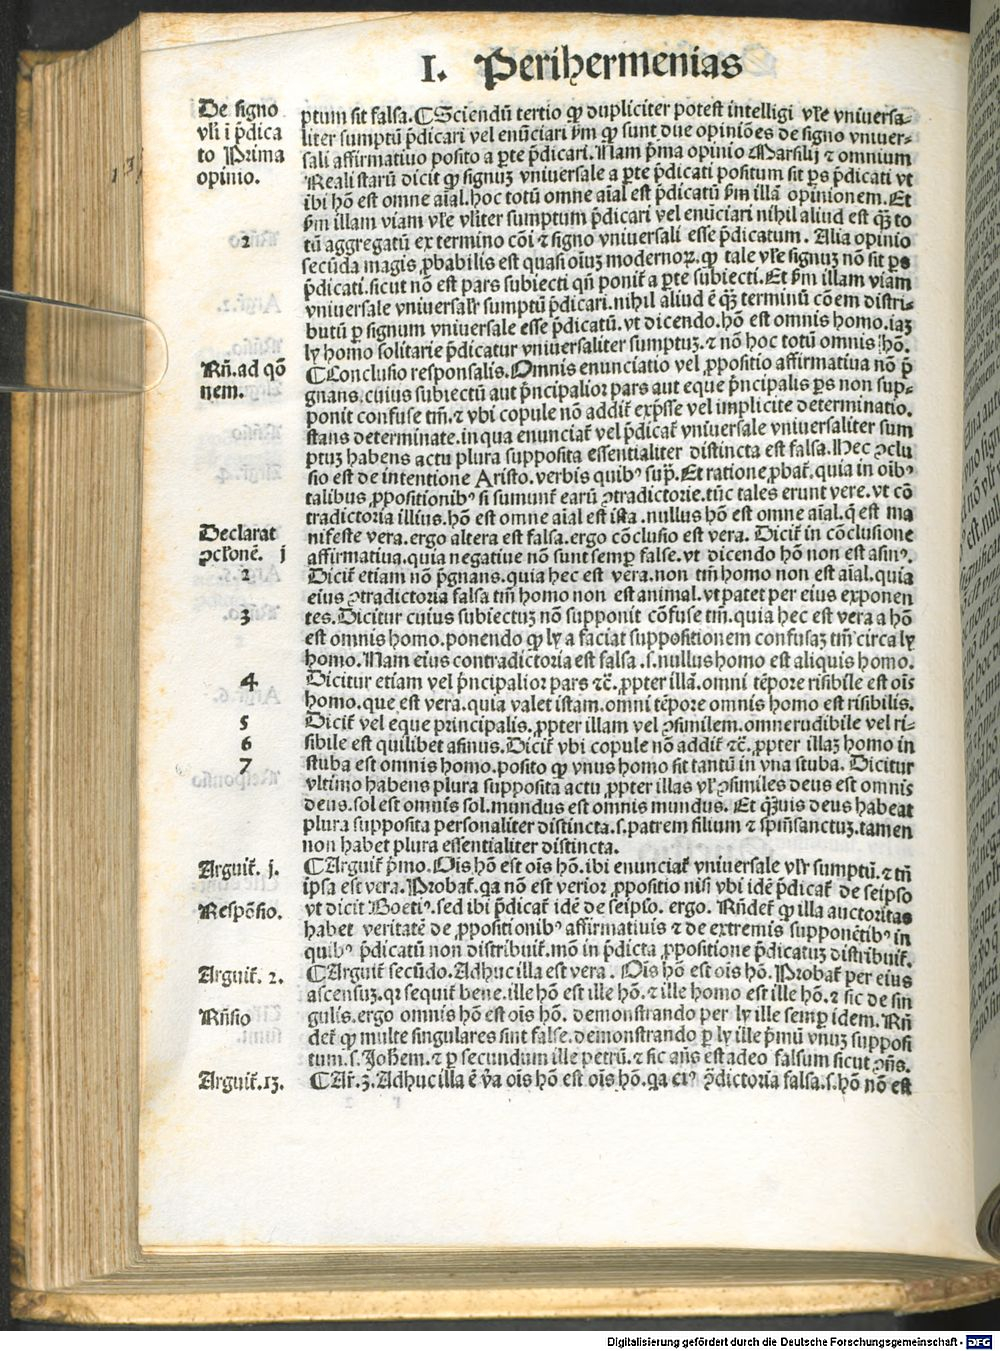 I. Perihermenias
De signo
vľi i p̄dica
to Prima
opinio.
ptum sit falsa. ⸿Sciendū tertio ꝙ dupliciter potest intelligi vľe vniuersa-
liter sumptū p̄dicari vel enūciari ẜm ꝙ sunt due opiniōes de signo vniuer-
sali affirmatiuo posito a ꝑte p̄dicari. Nam p̄ma opinio Marsilij ⁊ omnium
Realistarū dicit ꝙ signuꝫ vniuersale a ꝑte p̄dicati positum sit ꝑs p̄dicati vt
ibi hō est omne aīal. hoc totū omne aīal est p̄dicatū ẜm illā opinionem. Et
ẜm illam viam vľe vľiter sumptum p̄dicari vel enūciari nihil aliud est qꝫ to
2
tū aggregatū ex termino cōi ⁊ signo vniuersali esse p̄dicatum. Alia opinio
secūda magis ꝓbabilis est quasi oīuꝫ modernoꝝ. ꝙ tale vľe signuꝫ nō sit ꝑs
p̄dicati. sicut nō est pars subiecti qn̄ poniť a ꝑte subiecti. Et ẜm illam viam
vniuersale vniuersalr̄ sumptū p̄dicari. nihil aliud ē qꝫ terminū cōem distri-
butū ꝑ signum vniuersale esse p̄dicatū. vt dicendo. hō est omnis homo. iaꝫ
ly homo solitarie p̄dicatur vniuersaliter sumptuꝫ. ⁊ nō hoc totū omnis hō.
Rn̄. ad qō
nem.
⸿Conclusio responsalis. Omnis enunciatio vel ꝓpositio affirmatiua nō p̄
gnans. cuius subiectū aut p̄ncipalior pars aut eque p̄ncipalis ꝑs non sup-
ponit confuse tm̄. ⁊ vbi copule nō addiť exp̄sse vel implicite determinatio.
stans determinate. in qua enunciať vel p̄dicať vniuersale vniuersaliter sum
ptuꝫ habens actu plura supposita essentialiter distincta est falsa. Hec ꝯclu
sio est de intentione Aristo. verbis quibꝰ sup̄. Et ratione ꝓbať. quia in oibꝰ
talibus ꝓpositionibꝰ si sumunť earū ꝯtradictorie. tūc tales erunt vere. vt cō
tradictoria illius. hō est omne aīal est ista. nullus hō est omne aīal. q̄ est ma
Declarat
ꝯcľonē. j
nifeste vera. ergo altera est falsa. ergo cōclusio est vera. Diciť in cōclusione
affirmatiua. quia negatiue nō sunt semꝑ false. vt dicendo hō non est asinꝰ.
2
Diciť etiam nō p̄gnans. quia hec est vera. non tm̄ homo non est aīal. quia
eius ꝯtradictoria falsa tm̄ homo non est animal. vt patet per eius exponen
3
tes. Dicitur cuius subiectuꝫ nō supponit cōfuse tm̄. quia hec est vera a hō
est omnis homo. ponendo ꝙ ly a faciat suppositionem confusaꝫ tm̄ circa ly
homo. Nam eius contradictoria est falsa .s. nullus homo est aliquis homo.
4
Dicitur etiam vel p̄ncipalior pars ⁊c̄. ꝓpter illā. omni tēpore risibile est oīs
homo. que est vera. quia valet istam. omni tēpore omnis homo est risibilis.
5
Diciť vel eque principalis. ꝓpter illam vel ꝯsimilem. omne rudibile vel ri-
6
sibile est quilibet asinus. Diciť vbi copule nō addiť ⁊c̄. ꝓpter illaꝫ homo in
7
stuba est omnis homo. posito ꝙ vnus homo sit tantū in vna stuba. Dicitur
vltimo habens plura supposita actu ꝓpter illas vľ ꝯsimiles deus est omnis
deus. sol est omnis sol. mundus est omnis mundus. Et qꝫuis deus habeat
plura supposita personaliter distincta. s. patrem filium ⁊ sp̄msanctuꝫ. tamen
non habet plura essentialiter distincta.
Arguiť. j.
⸿Arguiť p̄mo. Ois hō est ois hō. ibi enunciať vniuersale vľr sumptū. ⁊ tn̄
ipsa est vera. Probať. qa nō est verior ꝓpositio nisi vbi idē p̄dicať de seipso
Respōsio.
vt dicit Boetiꝰ. sed ibi p̄dicať idē de seipso. ergo. Rn̄deť ꝙ illa auctoritas
habet veritatē de ꝓpositionibꝰ affirmatiuis ⁊ de extremis supponētibꝰ in
quibꝰ p̄dicatū non distribuiť. mō in p̄dicta ꝓpositione p̄dicatuꝫ distribuiť.
Arguiť. 2.
⸿Arguiť secūdo. Adhuc illa est vera. Ois hō est ois hō. Probať per eius
ascensuꝫ. qr sequiť bene. ille hō est ille hō. ⁊ ille homo est ille hō. ⁊ sic de sin
Rn̄sio
gulis. ergo omnis hō est ois hō. demonstrando per ly ille semꝑ idem. Rn̄
deť ꝙ multe singulares sint false. demonstrando ꝑ ly ille p̄mū vnuꝫ supposi
tum. s. Johēm. ⁊ ꝑ secundum ille petrū. ⁊ sic an̄s est adeo falsum sicut ꝯn̄s.
Arguiť. 13.
⸿Ar̄. 3. Adhuc illa ē v̄a oīs hō est oīs hō. qa eiꝰ ꝯ̄dictoria falsa. s. hō nō est
Digitalisierung gefördert durch die Deutsche Forschungsgemeinschaft - DFG